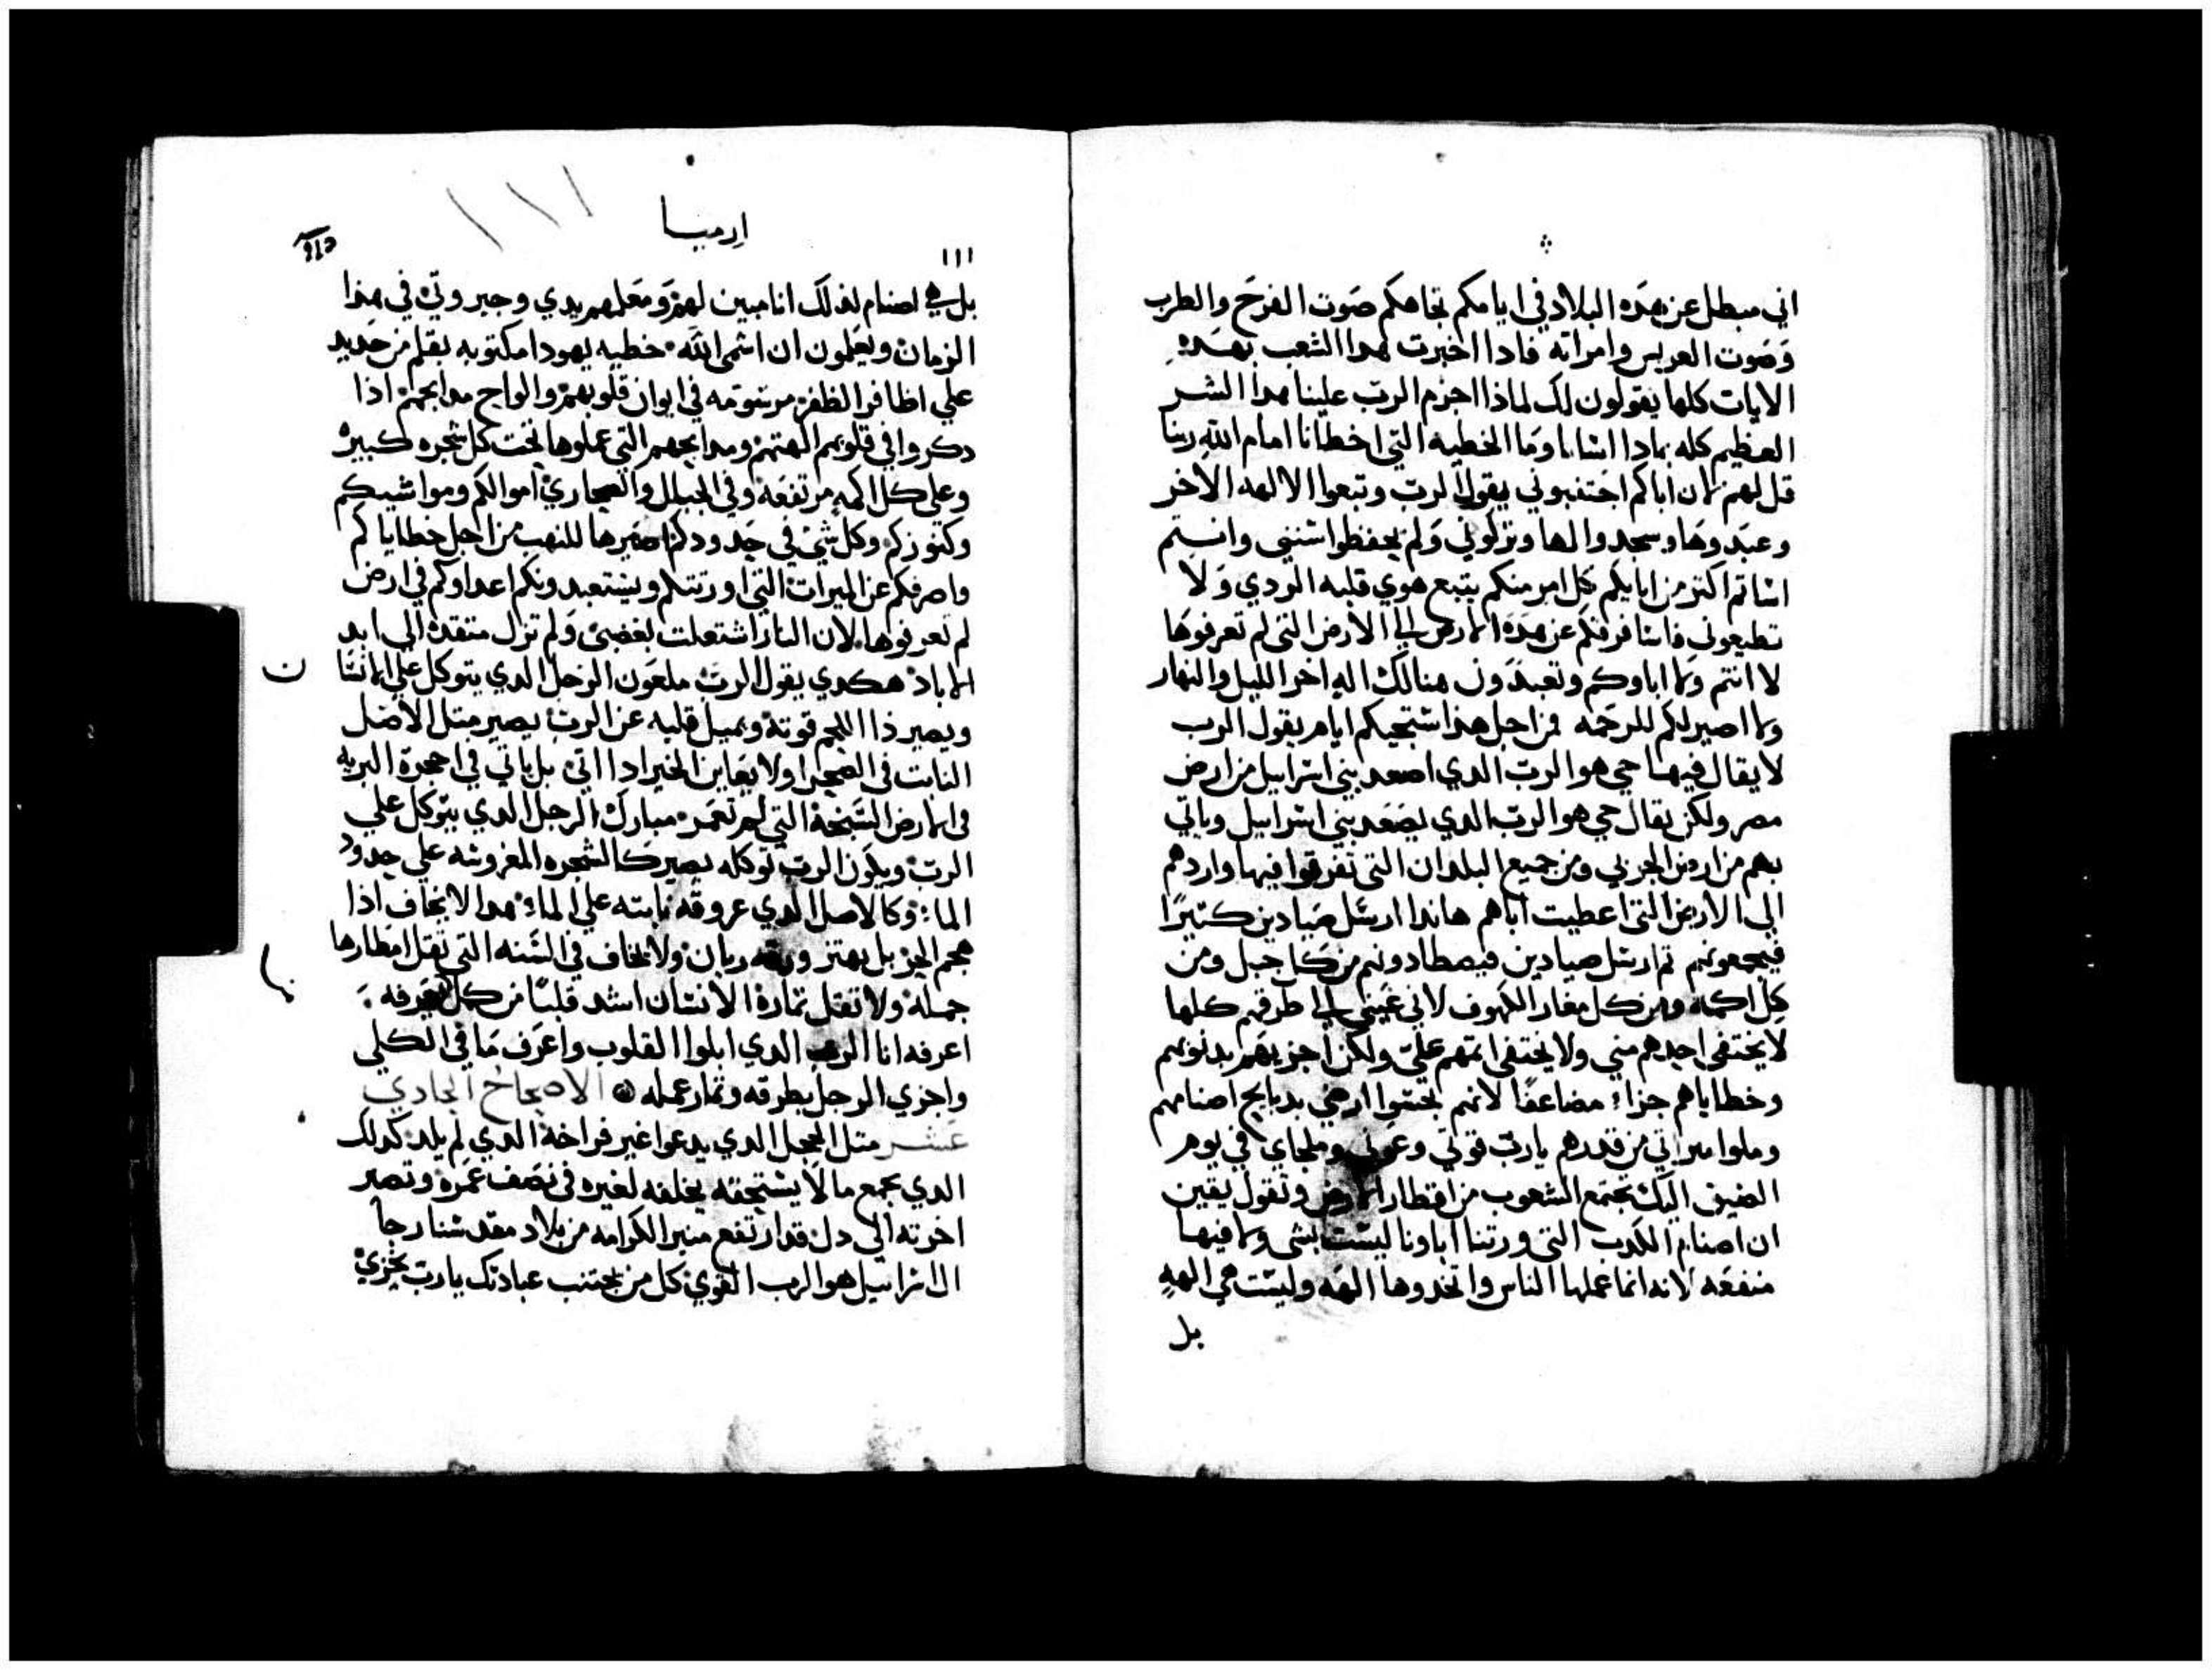 اني مبطل عن هده البلاد في ايامكم تجاهكم صوت الفرح والطرب
وصوت العريس وامراته فادا اخبرت هدا الشعب بهده
الايات كلها يقولون لك لماذا اجزم الرب علينا هدا الشر
العظيم كله بمادا اسانا وما الخطيه التي اخطانا امام الله ربنا
قل لهم لان اباكم اجتنبوني يقول الرب وتبعوا الالهه الاخر
وعبدوها وسجدوا لها وتركوني ولم يحفظوا سنني وانتم
اساتم اكتر من ابايكم كل امر منكم يتبع هوي قلبه الردي ولا
تطيعوني فانا فرقكم عن هده الارض الي الارض التي لم تعرفوها
لا انتم ولا اباوكم وتعبدون هنالك اله اخر الليل والنهار
ولا اصير لكم للرحمه من اجل هذا ستجيكم ايام يقول الرب
لا يقال فيها حي هو الرب الدي اصعد بني اسراييل من ارض
مصر ولكن يقال حي هو الرب الدي يصعد بني اسراييل وياتي
بهم من ارض الجربي ومن جميع البلدان التي تفرقوا فيها واردهم
الي الارض التي اعطيت اباهم هاندا ارسل صيادين كتيرا
فيجمعونهم تم ارسل صيادين فيصطادونهم من كل جبل ومن
كل اكمه ومن كل مغار الكهوف لاني عيني الي طرقهم كلها
لا يختفي احدهم مني ولا يختفي اتمهم علي ولكن اجزيهم بدنوبهم
وخطاياهم جزاء مضاعفا لانهم نجسوا ارضي بدبايح اصنامهم
وملوا ميراتي من قدرهم يارب قوتي وعوني وملجاي في يوم
الضيق اليك تجتمع الشعوب من اقطار الارض وتقول يقين
ان اصنام الكدب التي ورتنا اباونا ليست بشي ولا فيها
منفعه لانه انما عملها الناس واتخدوها الهه وليست هي الهه
بل
ارميا
١١١
بل هي اصنام لذلك انا مبين لهم ومعلمهم يدي وجبروتي في هذا
الزمان ويعلمون ان اسمي الله خطيه يهودا مكتوبه بقلم من حديد
علي اظافر الظفر مرسومه في ايوان قلوبهم والواح مدابحهم اذا
دكروا في قلوبهم الهتهم ومدابحهم التي عملوها تحت كل شجره كبيره
وعلي كل اكمه مرتفعه وفي الجبال والصحاري اموالكم ومواشيكم
وكنوزكم وكل شي في حدودكم اصيرها للنهب من اجل خطاياكم
واصرفكم عن الميرات التي اورتتكم ويستعبدونكم اعداوكم في ارض
لم تعرفوها لان النار اشتعلت بغضبي ولم تزل متقده الي ابد
الاباد هكدي يقول الرب ملعون الرجل الدي يتوكل علي الانسان
ويصير ذا اللحم قوته ويميل قلبه عن الرب يصير متل الاصل
النابت في الصحرا ولا يعاين الخير ادا اتي بل ياتي في احجرة البريه
في الارض السبخة التي لم تعمر مبارك الرجل الدي يتوكل علي
الرب ويكون الرب توكله يصير كالشجره المغروسه علي حدود
الما وكالاصل الدي عروقه نابته علي الماء هدا لا يخاف اذا
هجم الحر بل يهتز ورقه ريان ولا يخاف في السنه التي تقل امطارها
جمله ولا تقل تماره الانسان اشد قلبا من كل يعرفه
اعرفه انا الرب الدي ابلوا القلوب واعرف ما في الكلي
واجزي الرجل بطرقه وتمار عمله الاصحاح الحادي
عشر متل الحجل الدي يدعوا غير فراخه الدي لم يلد كدلك
الدي يجمع مالا يستحقه يخلفه لغيره في نصف عمره وتصير
اخرته الي دل قد ارتفع منبر الكرامه من بلاد مقدسنا رجا
ال اسراييل هو الرب القوي كل من يجتنب عبادتك يارب يخزي